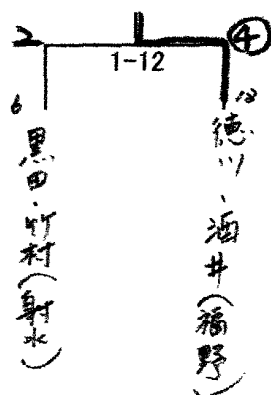 2
④
1-12
6
12
黒田・竹村(射水)
徳川・酒井(福野)